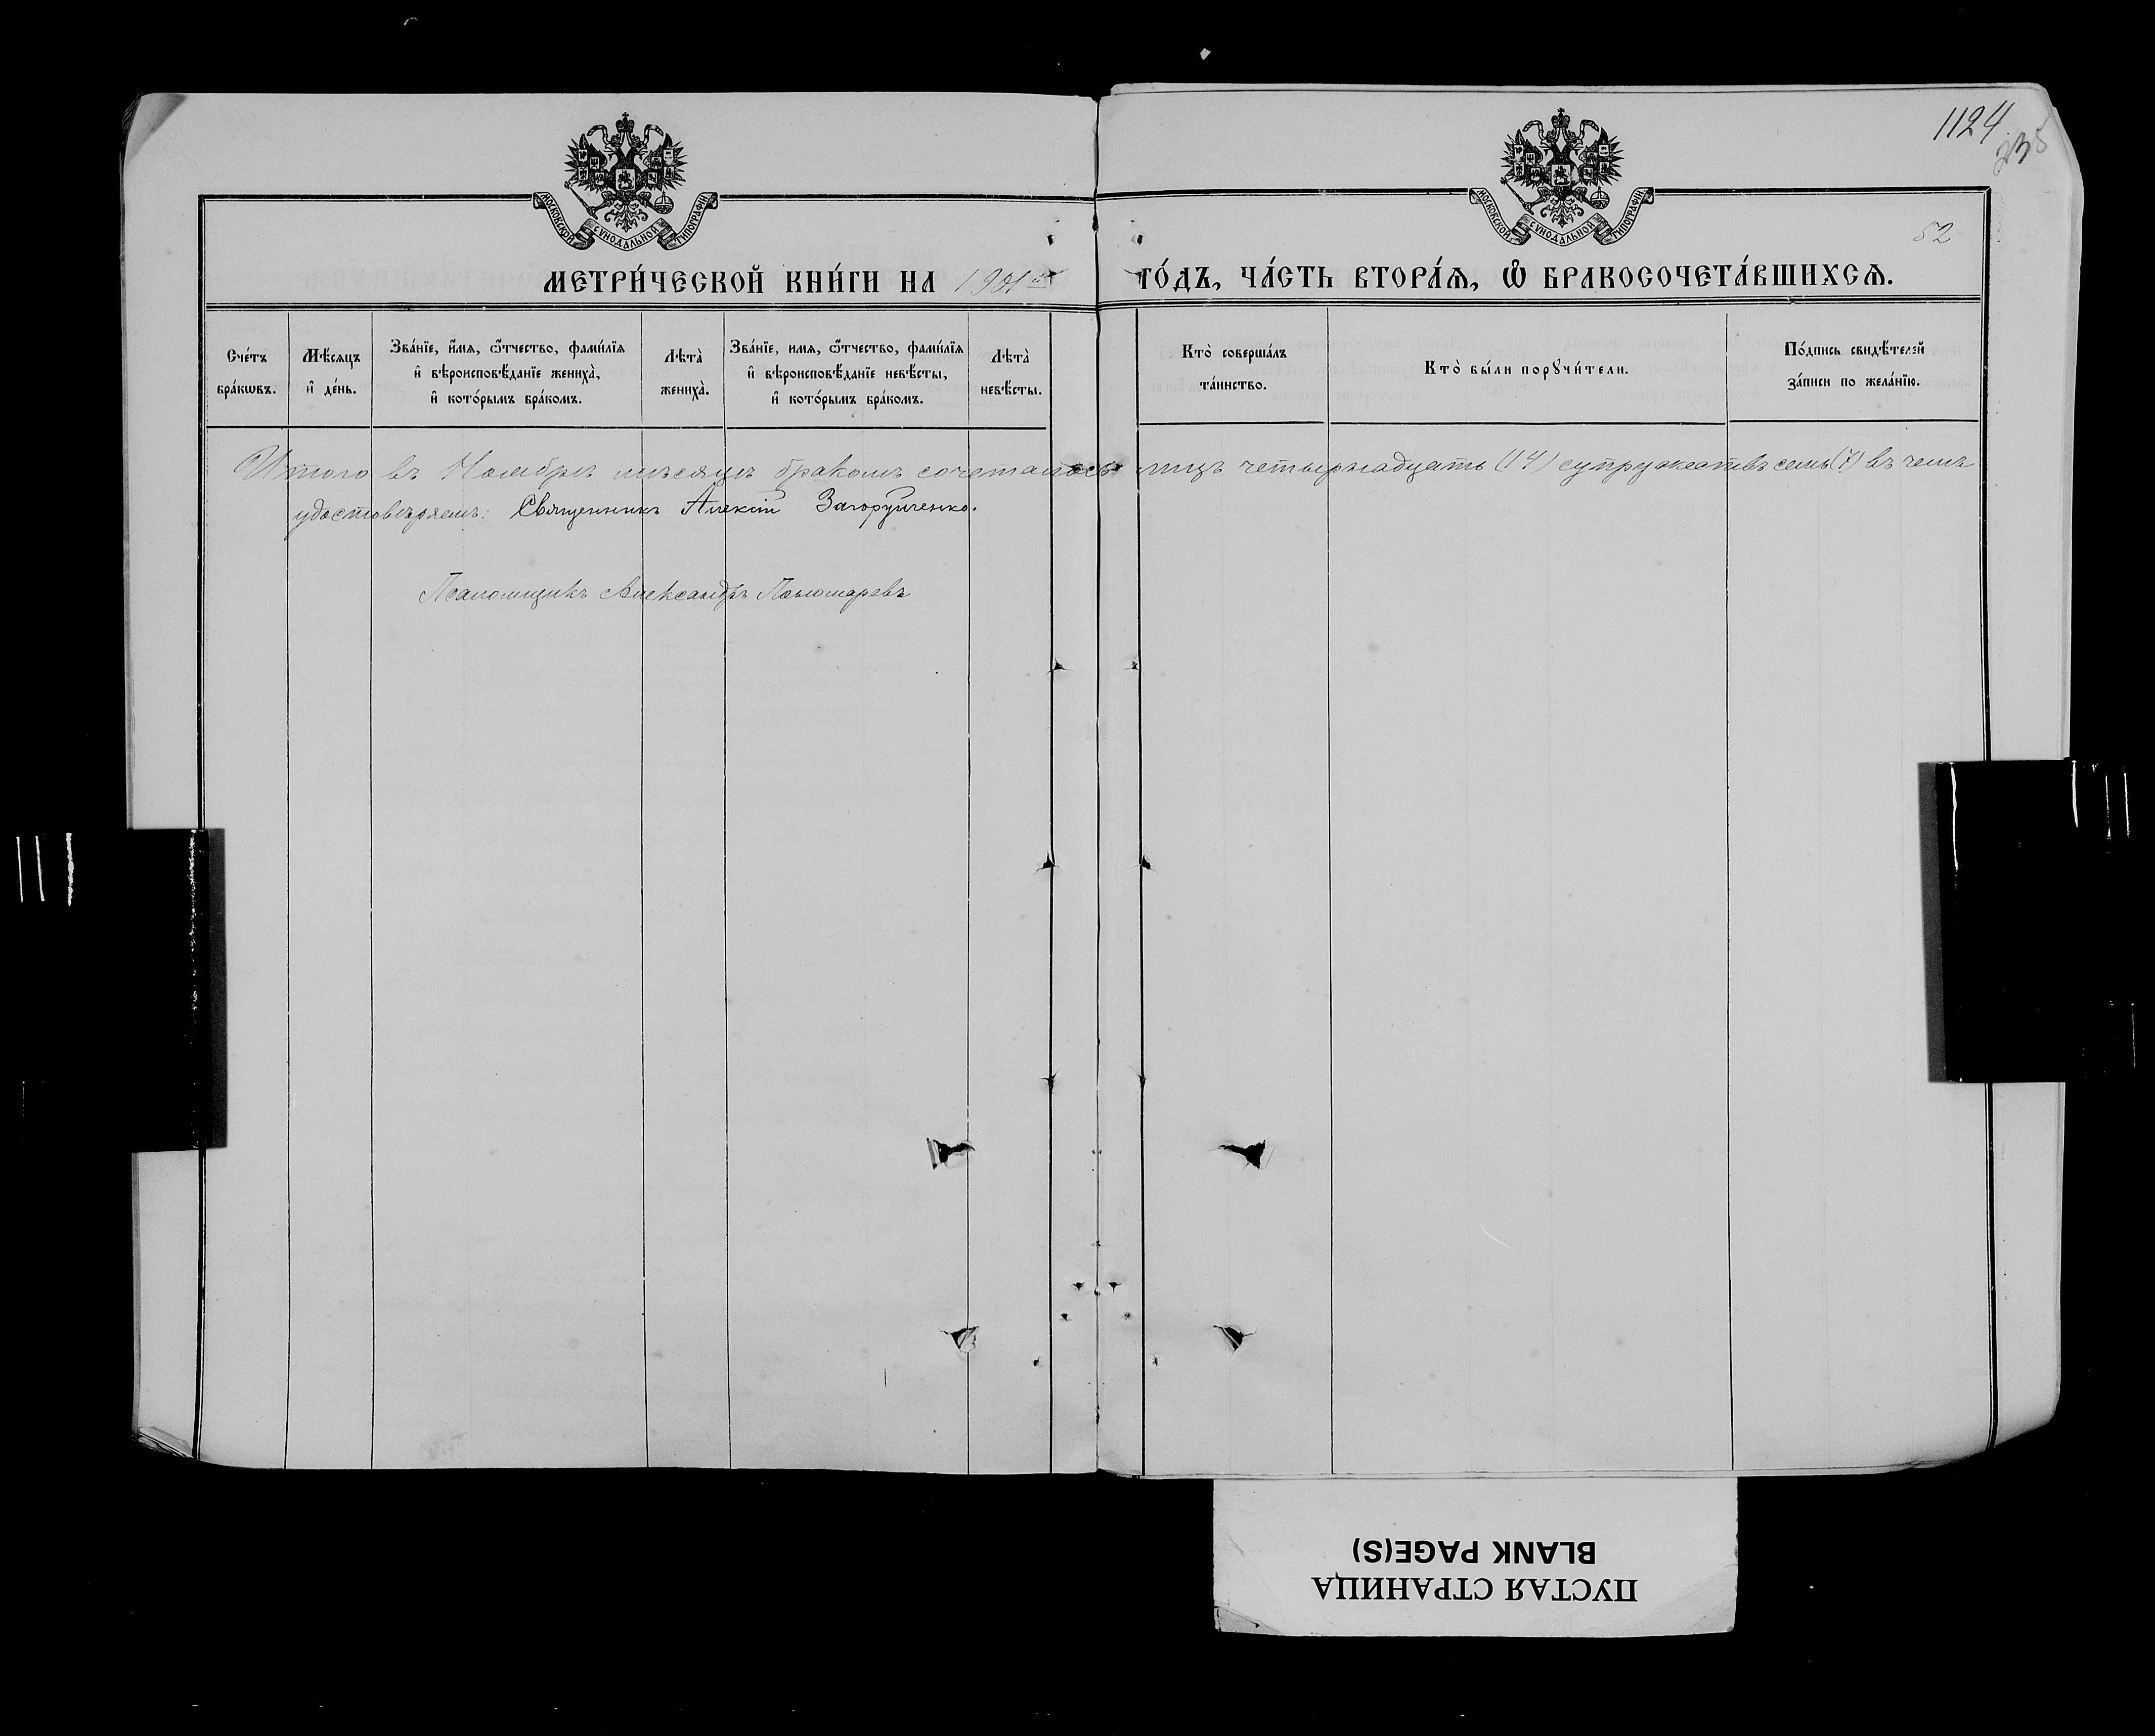 1124
235
МОСКОВСКОЙ СѴНОДАЛЬНОЙ ТИПОГРАФІИ
МОСКОВСКОЙ СѴНОДАЛЬНОЙ ТИПОГРАФІИ
52
МЕТРИ́ЧЕСКОЙ КНИ́ГИ НА 1901й ГО́ДЪ, ЧА́СТЬ ВТОРА́Ѧ, Ѽ БРАКОСОЧЕТА́ВШИХСѦ.
Сче́тъ
бра́кѡвъ.
Мѣ́сѧцъ
и҆ де́нь.
Зва́нїе, и҆́мѧ, ѻ҆́тчество, фами́лїѧ
и҆ вѣроисповѣ́данїе жениха̀,
и҆ кото́рымъ бра́комъ.
Лѣта̀
жениха̀.
Зва́нїе, имѧ, ѻ҆́тчество, фами́лїѧ
и҆ вѣроисповѣ́данїе невѣ́сты,
и҆ кото́рымъ бра́комъ.
Лѣта̀
невѣ́сты.
Кто̀ соверша́лъ
та́инство.
Кто̀ бы́ли порꙋчи́тели.
По́дпись свидѣ́телей
за́писи по жела́нїю.
Итого въ Ноябрѣ мѣсяцѣ бракомъ сочеталось лицъ четырнадцать (14) супружествъ семь (7) въ чемъ
удостовѣряемъ: Священникъ Алексій Загоруйченко.
Псаломщикъ Александръ Пономаревъ
BLANK PAGE(S)
ПУСТАЯ СТРАНИЦА